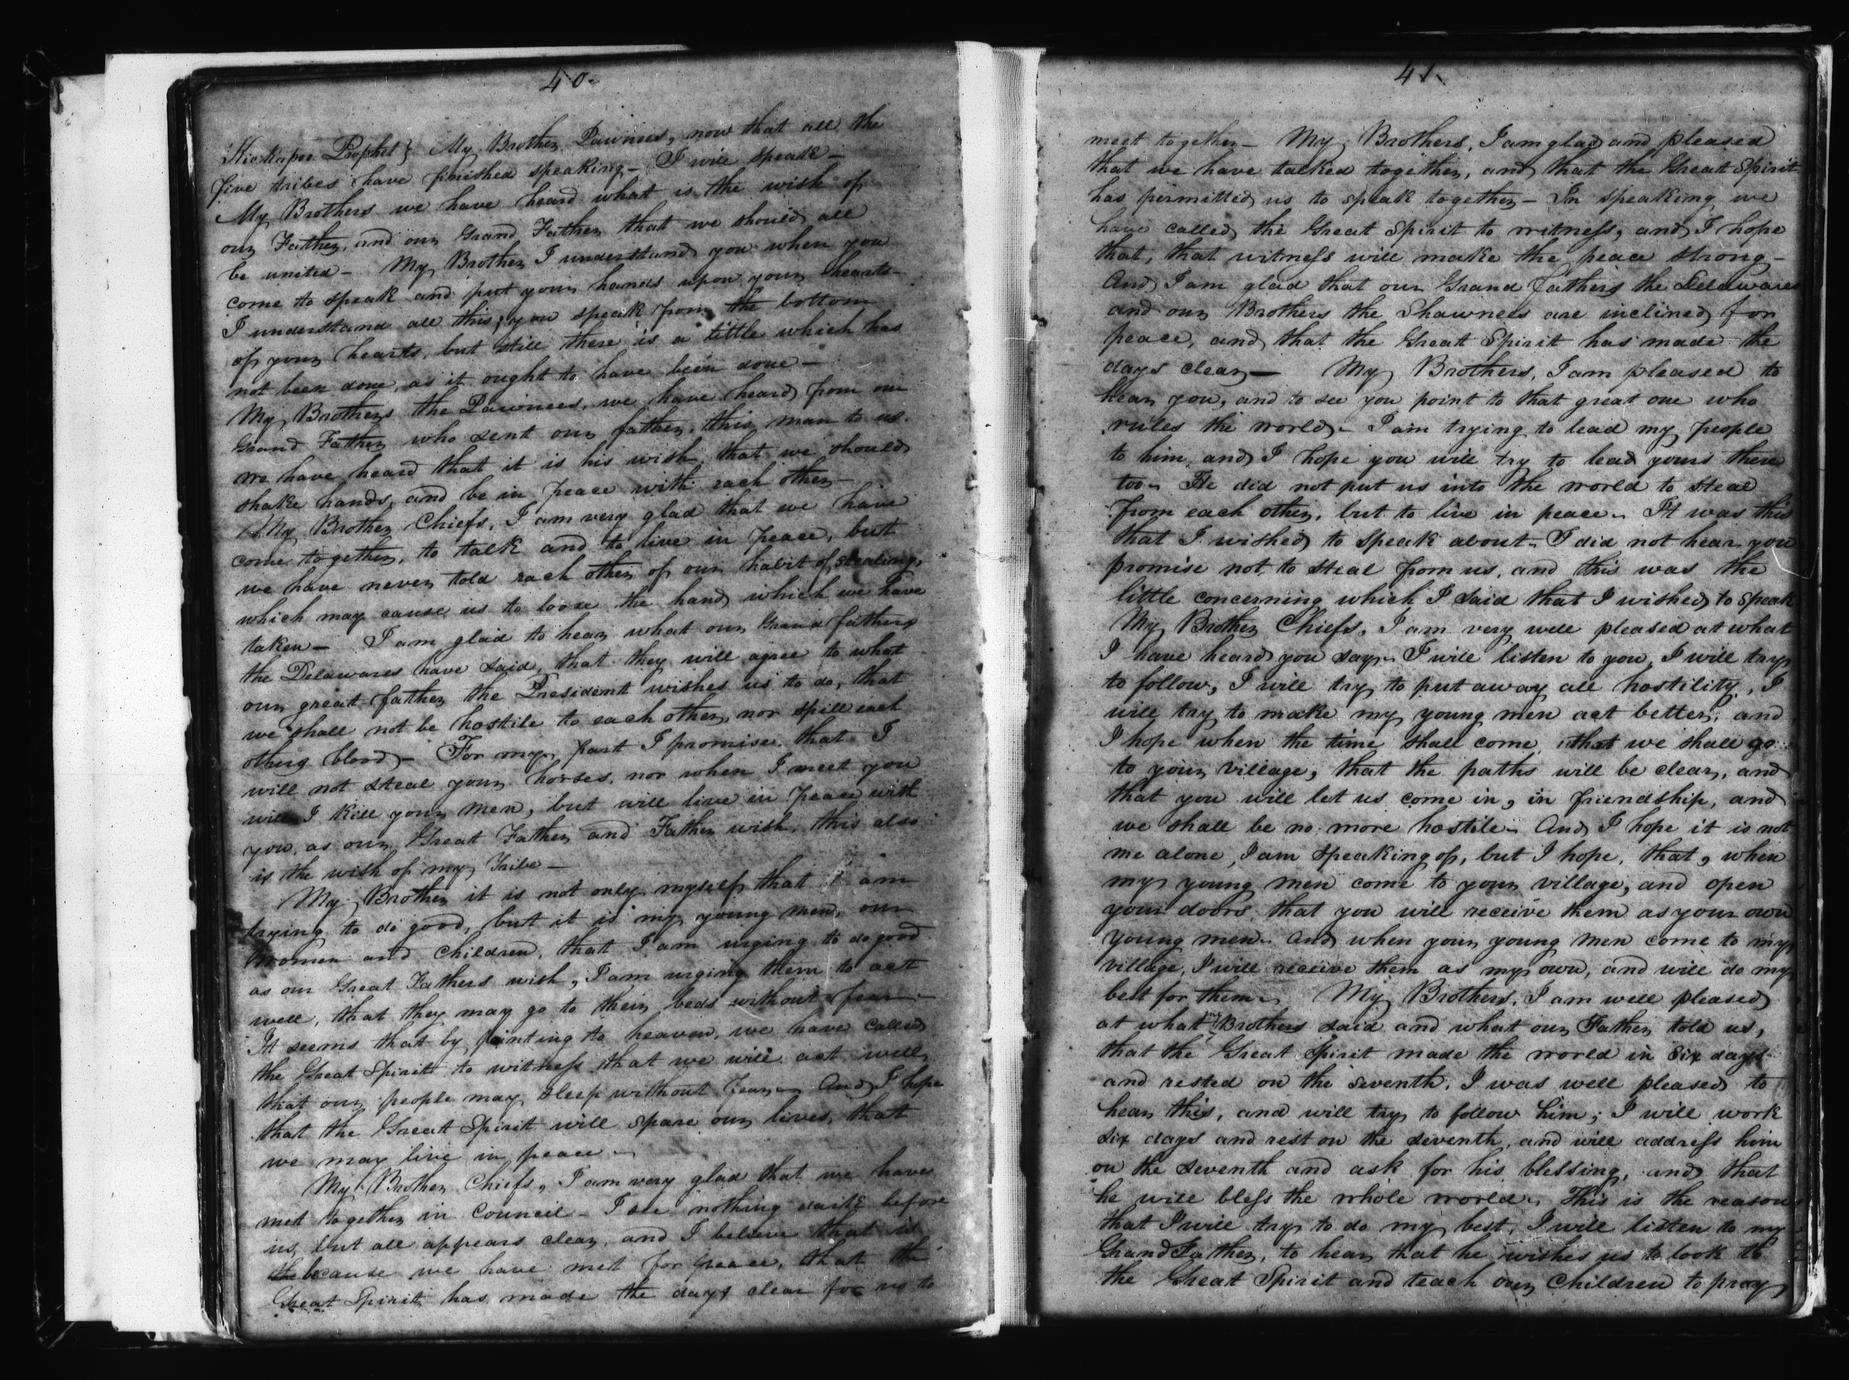 40.
Kickapoo Prophet} My Brother Pawnees, now that all the
five tribes have finished speaking – I will speak –
My Brothers we have heard what is the wish of
our Father, and our Grand Father that we should all
be united – My Brother I understand you when you
come to speak and put your hands upon your hearts –
I understand all this; you speak from the bottom
of your hearts, but still there is a little which has
not been done, as it ought to have been done –
My Brothers the Pawnees, we have heard from our
Grand Father who sent our father, this man to us.
we have heard that it is his wish that we should
shake hands, and be in peace with each other –
My Brother Chiefs, I am very glad that we have
come together, to talk and to live in peace, but
we have never told each other of our habit of stealing,
which may cause us to loose the hand which we have
taken – I am glad to hear what our Grand fathers
the Delawares have said, that they will agree to what
our great father the President wishes us to do, that
we shall not be hostile to each other, nor spill each
others blood – For my part I promise that I
will not steal your horses, nor when I meet you
will I kill your men, but will live in peace with
you, as our Great Father and Father wish, this also
is the wish of my Tribe –
My Brother it is not only myself that I am
trying to do good, but it is my young men, our
women and children, that I am urging to do good
as our Great Fathers wish, I am urging them to act
well, that they may go to their beds without fear –
It seems that by pointing to heaven, we have called
the Great Spirit to witness that we will act well,
that our people may sleep without fear – And I hope
that the Great Spirit will spare our lives, that
we may live in peace –
My Brother Chiefs, I am very glad that we have
met together in Council – I see nothing dark before
us, but all appears clear, and I believe that is
because we have met for peace, that the
Great Spirit has made the days clear for us to
41.
meet together – My Brothers, I am glad and pleased
that we have talked together, and that the Great Spirit
has permitted us to speak together – In speaking we
have called the Great Spirit to witness, and I hope
that, that witness will make the peace strong –
And I am glad that our Grand fathers the Delawares
and our Brothers the Shawnees are inclined for
peace, and that the Great Spirit has made the
days clear – My Brothers, I am pleased to
hear you, and to see you point to that great one who
rules the world – I am trying to lead my people
to him and I hope you will try to lead yours there
too – He did not put us into the world to steal
from each other, but to live in peace – It was this
that I wished to speak about – I did not hear you
promise not, to steal from us, and this was the
little concerning which I said that I wished to speak
My Brother Chiefs, I am very well pleased at what
I have heard you say – I will listen to you, I will try
to follow, I will try to put away all hostility, I
will try to make my young men act better; and
I hope when the time shall come, that we shall go
to your village, that the paths will be clear, and
that you will let us come in, in friendship, and
we shall be no more hostile – And I hope it is not
me alone, I am speaking of, but I hope, that, when
my young men come to your village, and open
your doors that you will receive them as your own
young men – And when your young men come to my
village, I will receive them as my own, and will do my
best for them – My Brothers, I am well pleased
at what my Brothers said and what our Father told us,
that the Great Spirit made the world in six days
and rested on the seventh. I was well pleased to
hear this, and will try to follow him; I will work
six days and rest on the seventh, and will address him
on the seventh and ask for his blessing, and that
he will bless the whole world – This is the reason
that I will try to do my best, I will listen to my
Grand Father, to hear that he wishes us to look to
the Great Spirit and teach our children to pray